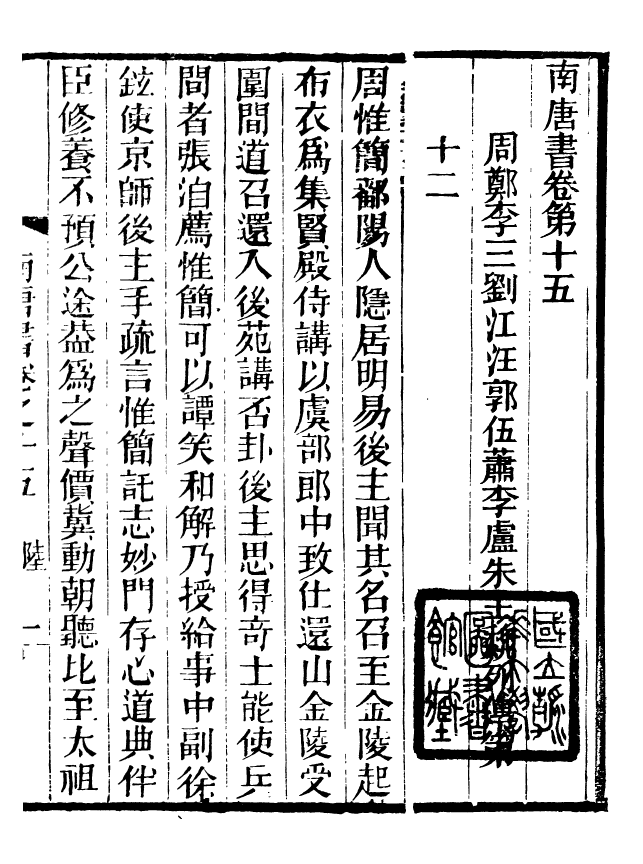 南唐書卷第十五
周鄭李三劉江汪郭伍蕭李盧朱王魏列傳第
十二
周惟簡鄱陽人隱居明易後主聞其名召至金陵起
布衣爲集賢殿侍講以虞部郎中致仕還山金陵受
圍間道召還入後苑講否卦後主思得竒士能使兵
間者張洎薦惟簡可以譚笑和解乃授給事中副徐
鉉使京師後主手疏言惟簡託志妙門存心道典伴
臣修養不預公途葢爲之聲價冀動朝聽比至太祖
南唐書卷之十五 陸 一